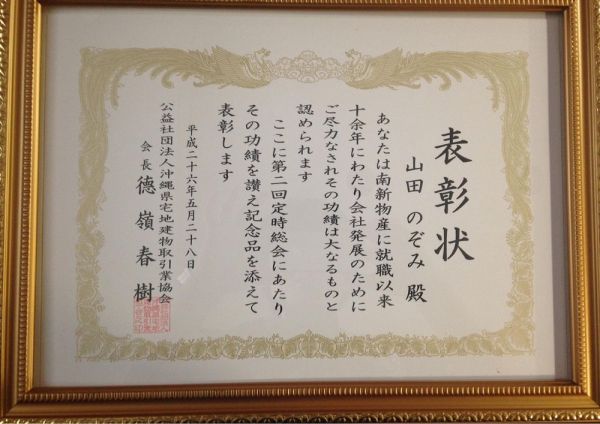 表彰状
山田 のぞみ 殿
あなたは南新物産に就職以来
十余年にわたり会社発展のために
ご尽力なされその功績は大なるものと
認められます
ここに第二回定時総会にあたり
その功績を讃え記念品を添えて
表彰します
平成二十六年五月二十八日
公益社団法人沖縄県宅地建物取引業協会
会長 德嶺春樹